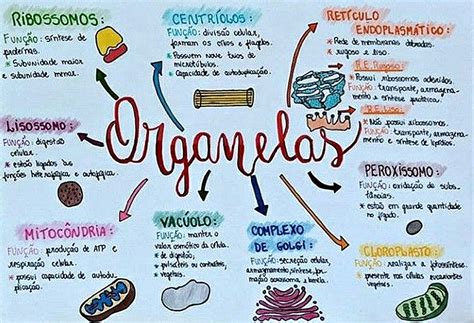 RIBOSSOMOS:
FUNÇÃO: síntese de
proteínas.
* Subunidade maior
e subunidade menor.
CENTRÍOLOS:
FUNÇÃO: divisão celular,
formam os cílios e flagelos.
* Possuem nove trios de
microtúbulos.
* Capacidade de autoduplicação.
RETÍCULO
ENDOPLASMÁTICO:
* Rede de membranas dobradas.
* rugoso e liso.
R.E. Rugoso:
* Possui ribossomos aderidos.
FUNÇÃO: transporte, armazena-
mento e síntese proteica.
R.E. Liso:
* Não possui ribossomos.
FUNÇÃO: transporte, armazena-
mento e síntese de lipídios.
Organelas
LISOSSOMO:
FUNÇÃO: digestão
celular.
* estão ligados às
funções heterofágica e autofágica.
PEROXISSOMO:
FUNÇÃO: oxidação de subs-
tâncias.
* está em grande quantidade
no fígado.
MITOCÔNDRIA:
FUNÇÃO: produção de ATP e
respiração celular.
* possui capacidade de autodu-
plicação.
VACÚOLO:
FUNÇÃO: manter o
valor osmótico da célula.
* de digestão,
* pulsáteis ou contráteis,
* vegetais.
COMPLEXO
DE GOLGI:
FUNÇÃO: secreção celular,
armazenamento, síntese, forma
acrossomo, e lamela.
CLOROPLASTO:
FUNÇÃO: realizar a fotossíntese.
* presente nas células eucariontes
vegetais.